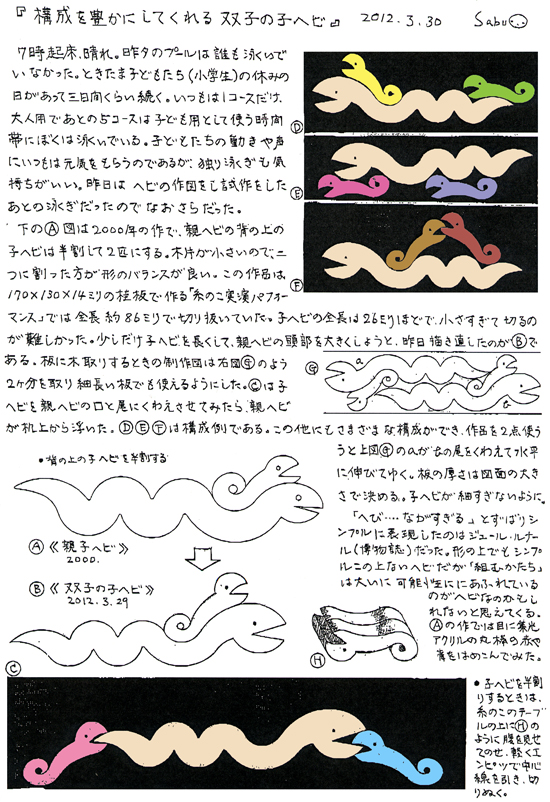 『構成を豊かにしてくれる 双子の子ヘビ』 2012.3.30 Sabu
7時起床、晴れ。昨夕のプールは誰も泳いで
いなかった。ときたま子どもたち(小学生)の休みの
日があって三日間くらい続く。いつもは1コースだけ、
大人用であとの5コースは子ども用として使う時間
帯にぼくは泳いでいる。子どもたちの動きや声
にいつもは元気をもらうのであるが、独り泳ぎも気
持ちがいい。昨日は ヘビの作図をし試作をした
あとの泳ぎだったのでなおさらだった。
下のⒶ図は2000年の作で、親ヘビの背の上の
子ヘビは半割して2匹にする。木片が小さいので、二
つに割った方が形のバランスが良い。この作品は
170×130×14ミリの桂板で作る「糸のこ実演パフォー
マンス」では全長 約86ミリで切り抜いていた。子ヘビの全長は26ミリほどで、小さすぎて切るの
が難しかった。少しだけ子ヘビを長くして、親ヘビの頭部を大きくしようと、昨日描き直したのがⒷで
ある。板に木取りするときの制作図は右図Ⓖのよう
2ヶ分を取り細長い板でも使えるようにした。Ⓒは子
ヘビを親ヘビの口と尾にくわえさせてみたら、親ヘビ
が机上から浮いた。ⒹⒺⒻは構成例である。この他にもさまざまな構成ができ、作品を2点使う
うと上図Ⓖのaがbの尾をくわえて水平
に伸びてゆく。板の厚さは図面の大き
さで決める。子ヘビが細すぎないように。
「へび‥‥ながすぎる」とずばりシ
ンプルに表現したのはジュール・ルナー
ル(博物誌)だった。形の上でもシンプ
ルこの上ないヘビだが「組むかたち」
は大いに可能性ににあふれている
のがヘビなのかもし
れないと思えてくる。
Ⓐの作では目に蛍光
アクリルの丸棒の赤や
青をはめこんでみた。
Ⓓ
Ⓔ
Ⓕ
Ⓖ
a
b
・背の上の子ヘビを半割する
Ⓐ《親子ヘビ》
2000.
Ⓑ《双子の子ヘビ》
2012.3.29
Ⓒ
Ⓗ
●子ヘビを半割
りするときは、
糸のこのテーブ
ルの上にⒽの
ように腹を見せ
てのせ、軽くエ
ンピツで中心
線を引き、切
りぬく。